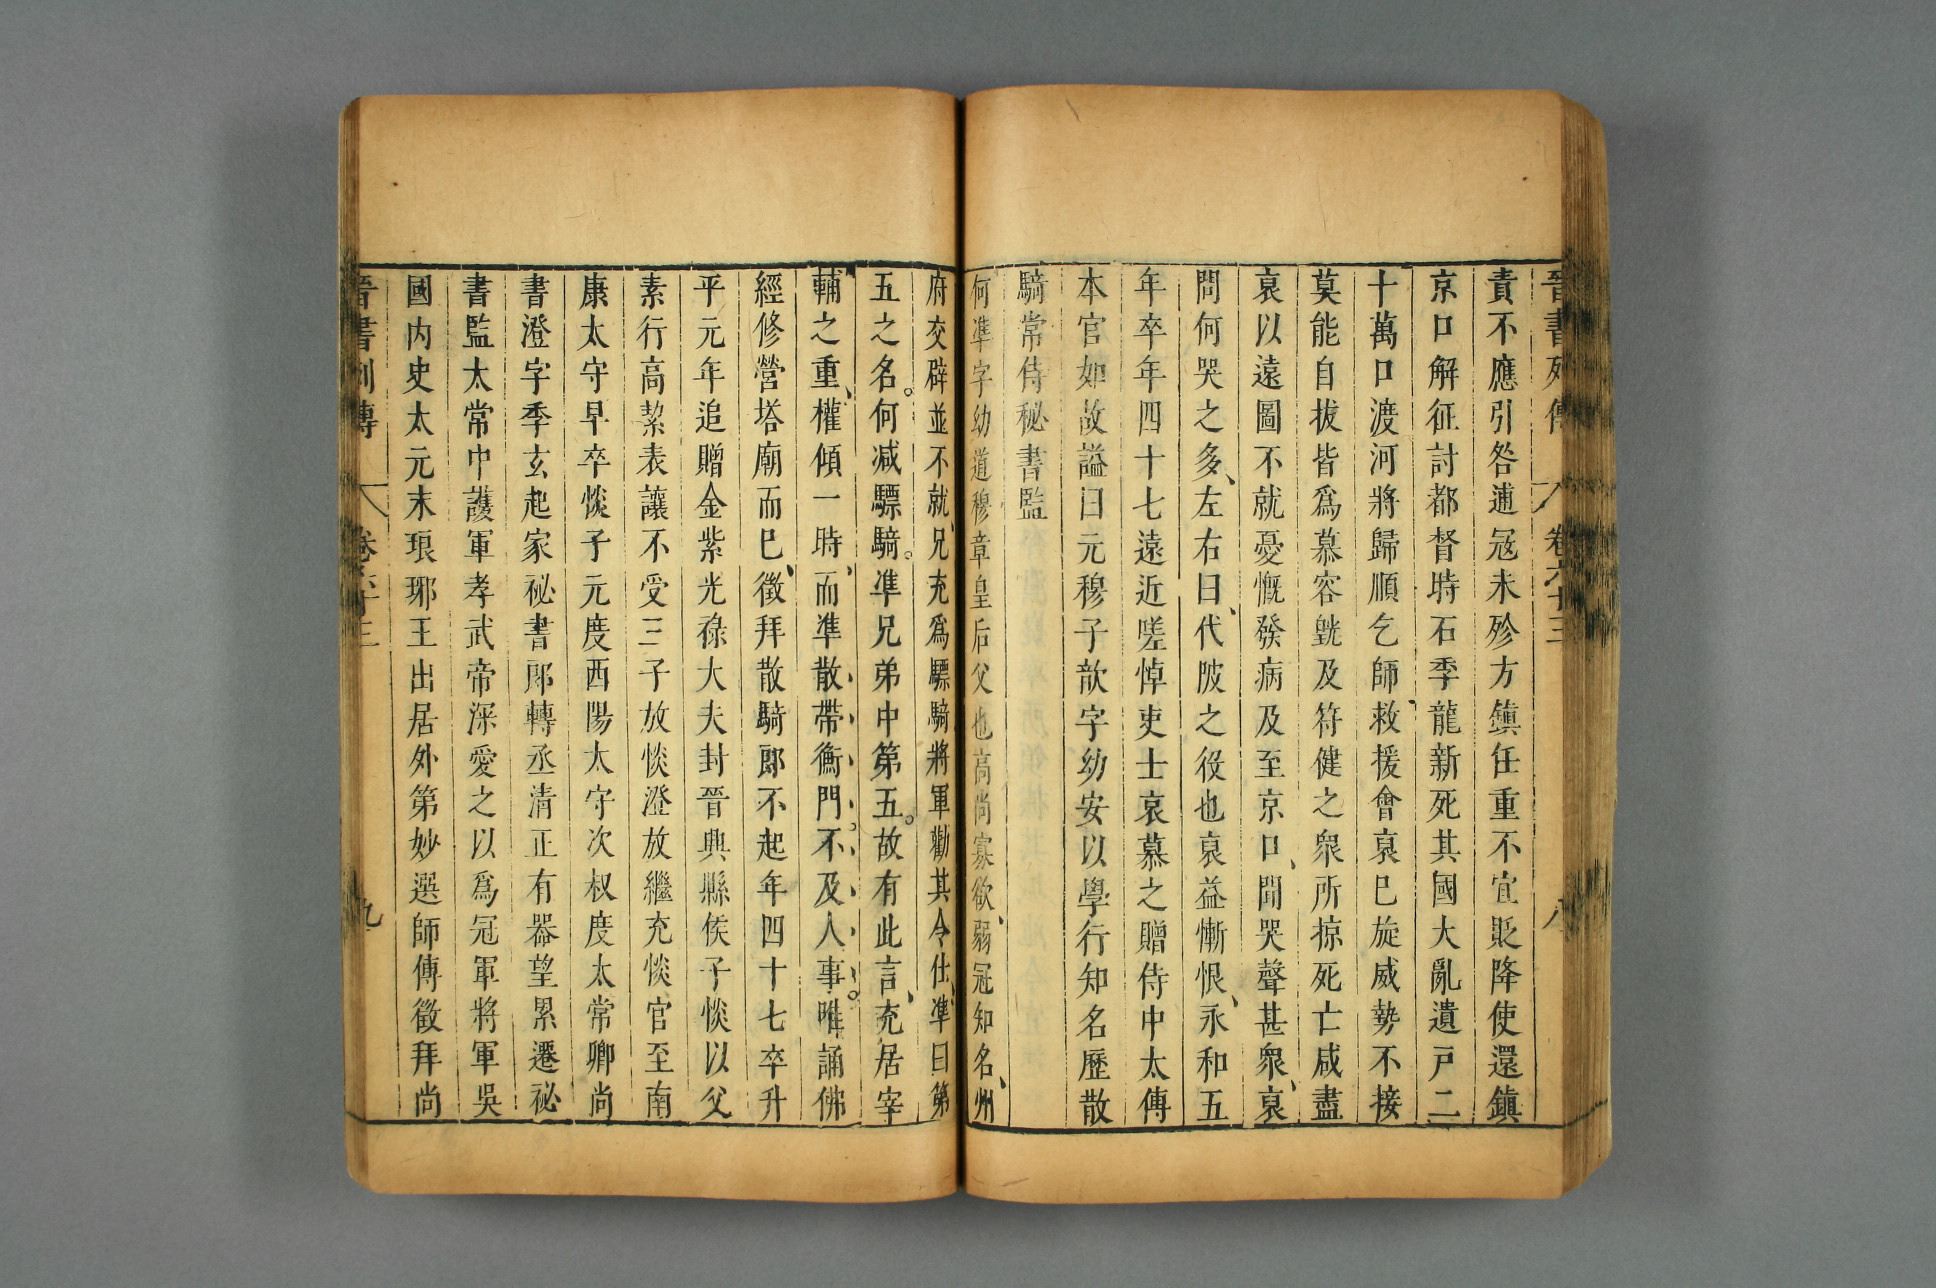 晉書列傳 卷六十三 八
責不應引咎逋寇未殄方鎮任重不宜貶降使還鎮
京口解征討都督時石季龍新死其國大亂遺戸二
十萬口渡河將歸順乞師救援會裒已旋威勢不接
莫能自拔皆爲慕容皝及苻健之衆所掠死亡咸盡
裒以遠圖不就憂慨發病及至京口聞哭聲甚衆裒
問何哭之多左右曰代陂之役也裒益慚恨永和五
年卒年四十七遠近嗟悼吏士哀慕之贈侍中太傅
本官如故謚曰元穆子歆字幼安以學行知名歷散
騎常侍秘書監
何準字幼道穆章皇后父也高尚寡欲弱冠知名州
府交辟並不就兄充爲驃騎將軍勸其令仕準曰第
五之名何减驃騎準兄弟中第五故有此言充居宰
輔之重權傾一時而準散帶衡門不及人事唯誦佛
經修營塔廟而已徵拜散騎郎不起年四十七卒升
平元年追贈金紫光祿大夫封晉興縣侯子惔以父
素行高絜表讓不受三子放惔澄放繼充惔官至南
康太守早卒惔子元度西陽太守次叔度太常卿尚
書澄字季玄起家祕書郎轉丞清正有器望累遷祕
書監太常中護軍孝武帝深愛之以爲冠軍將軍吳
國内史太元末琅邪王出居外第妙選師傅徵拜尚
晉書列傳 卷六十三 九